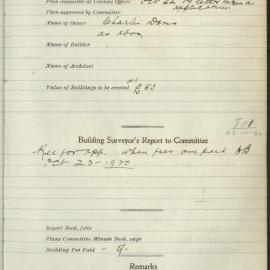 Plan deposited at Council Offices Oct 22 by letter when a
application
Plan approved by Committee
Name of Owner Charles Davis
as above
Name of Builder
Name of Architect
Value of Buildings to be erected £60
Building Surveyor's Report to Committee
Rec for app. when fees are paid
Oct 23-1920
Report Book, folio
Plans Committee Minute Book, page
Building Fee Paid - 5/-
Remarks